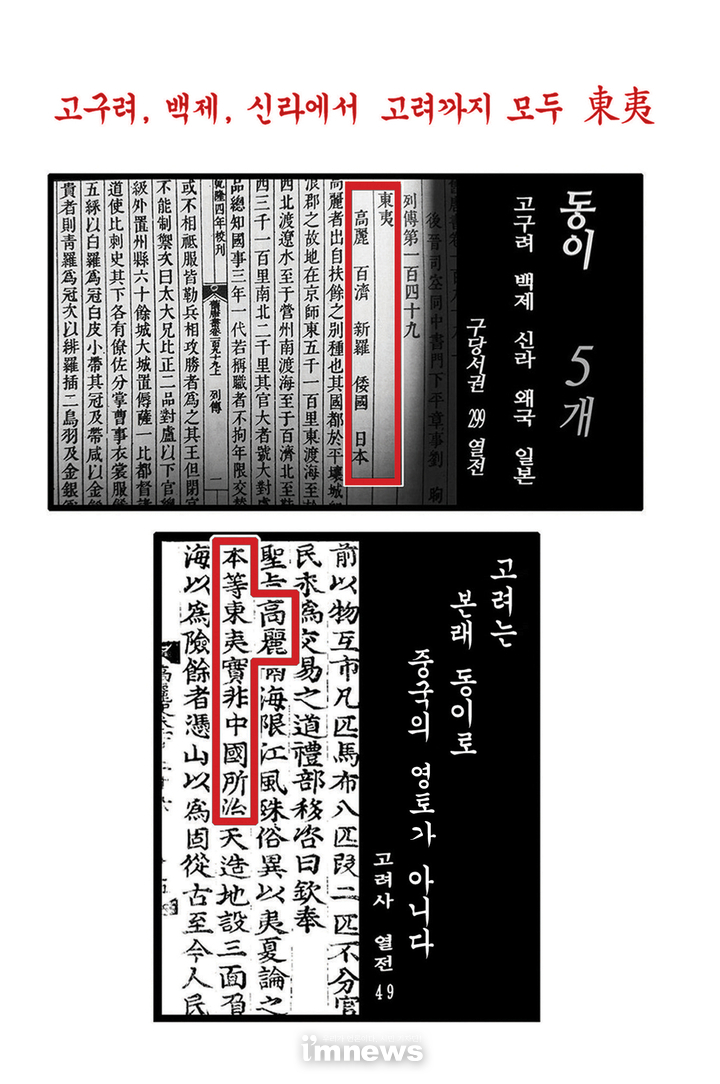 고구려, 백제, 신라에서 고려까지 모두 東夷
동이 5개
고구려 백제 신라 왜국 일본
구당서권 299 열전
後晉司空同中書門下平章事劉 昫
列傳第一百四十九
東夷
高麗 百濟 新羅 倭國 日本
高麗者出自扶餘之別種也其國都於平壤城
浪郡之故地在京師東五千一百里東渡海至於
西北渡遼水至于營州南渡海至于百濟北至
西三千一百里南北二千里其官大者號大對
品總知國事三年一代若稱職者不拘年限交
乾隆四年校刊 舊唐書卷一百九十九上 列傳 一
或不相祗服皆勒兵相攻勝者爲之其王但閉宮
不能制禦次曰太大兄比正二品對盧以下官總
級外置州縣六十餘城大城置傉薩一比都督諸
道使比刺史其下各有僚佐分掌曹事衣裳服
五綵以白羅爲冠白皮小帶其冠及帶咸以金
貴者則青羅爲冠次以緋羅插二鳥羽及金銀
고려는
본래 동이로
중국의 영토가 아니다
고려사 열전 49
前以物互市凡匹馬布八匹段二匹不分官
民求為交易之道禮部移咨曰欽奉
聖旨高麗隔海限江風殊俗異以夷夏論之
本等東夷實非中國所治天造地設三面負
海以為險餘者憑山以為固從古至今人民
imnews